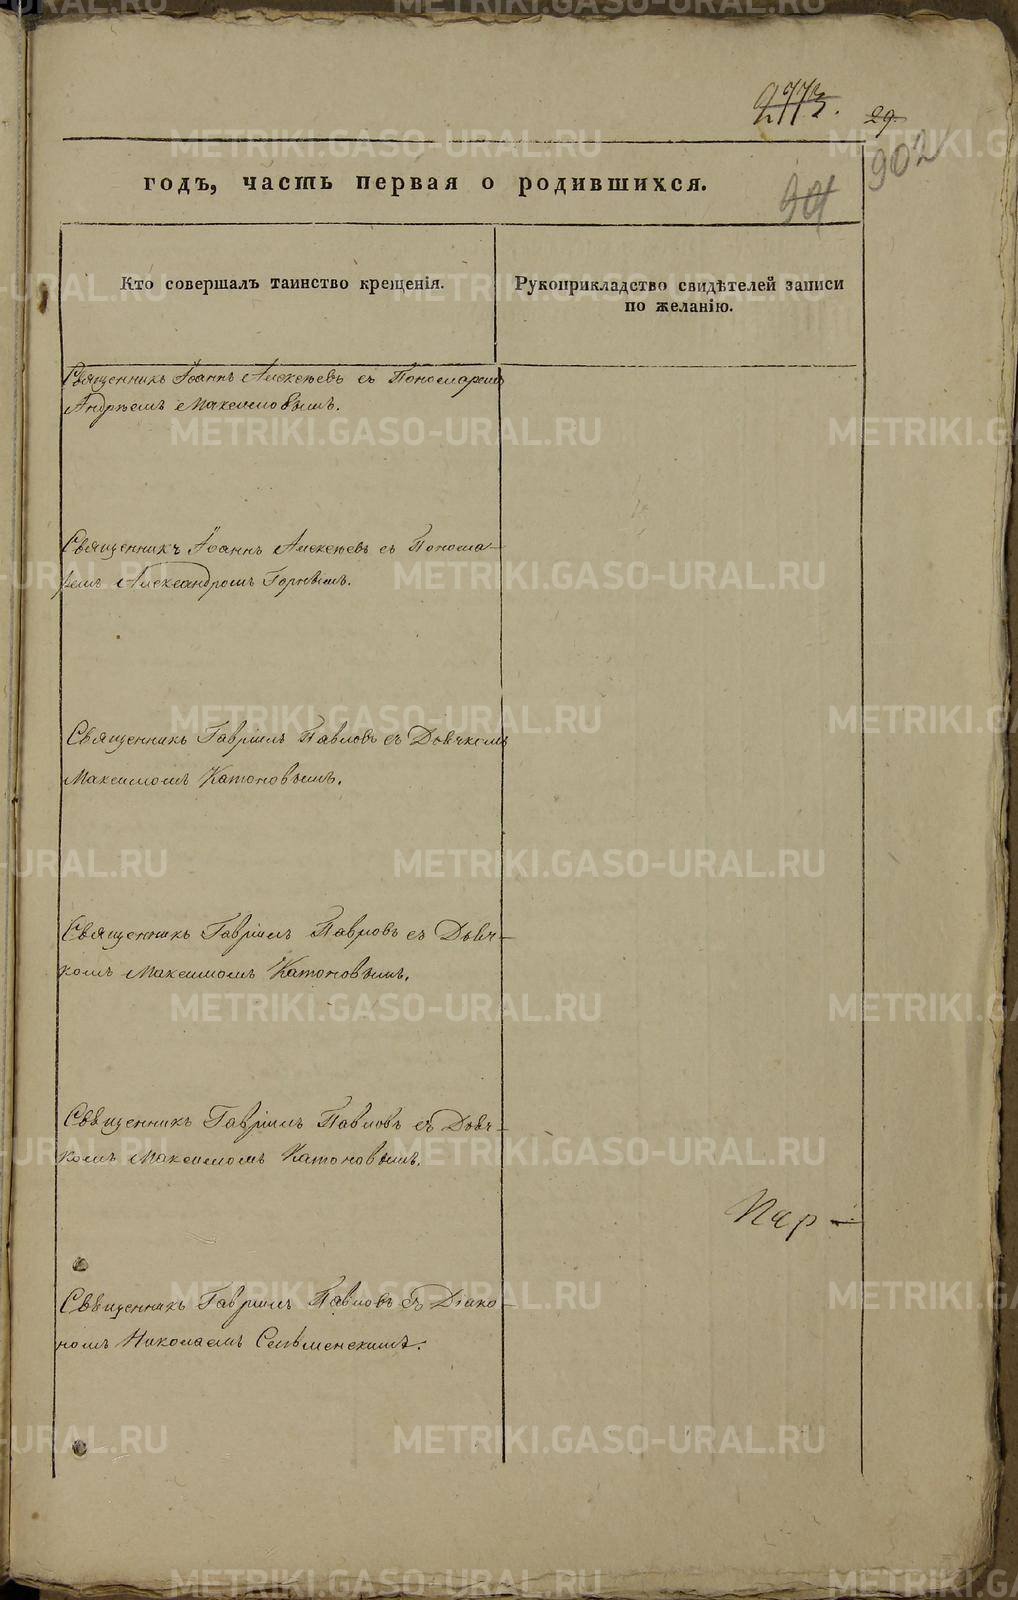 2773. 29.
902
901
годъ, часть первая о родившихся.
Кто совершалъ таинство крещенія.
Рукоприкладство свидѣтелей записи
по желанію.
Священникъ Іоаннъ Алексѣевъ съ Пономаремъ
Андреемъ Максимовымъ.
Священникъ Іоаннъ Алексѣевъ съ Понома-
ремъ Александромъ
Священникъ Гавріилъ Павловъ съ Дьячкомъ
Максимомъ Катоновымъ.
Священникъ Гавріилъ Павловъ съ Дьяч-
комъ Максимомъ Катоновымъ.
Священникъ Гавріилъ Павловъ съ Дьяч-
комъ Максимомъ Катоновымъ.
Священникъ Гавріилъ Павловъ съ Діако-
номъ Николаемъ
METRIKI.GASO-URAL.RU